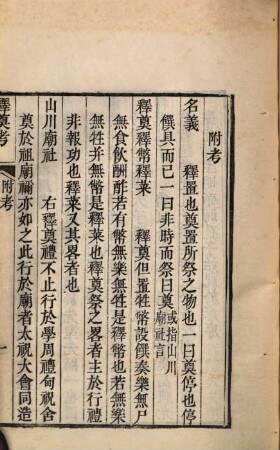 附考
名義　釋置也奠置所祭之物也一曰奠停也停
饌具而已一曰非時而祭曰奠或指山川廟社言
釋奠釋幣釋菜　釋奠但置牲幣設饌奏樂無尸
無食飲酬酢若有幣無樂無牲是釋幣也若無樂
無牲并無幣是釋菜也釋奠祭之畧者主於行禮
非報功也釋菜又其畧者也
山川廟社　右釋奠禮不止行於學周禮甸祝舍
奠於祖廟禰亦如之此行於廟者太祝大會同造
釋奠考
附考